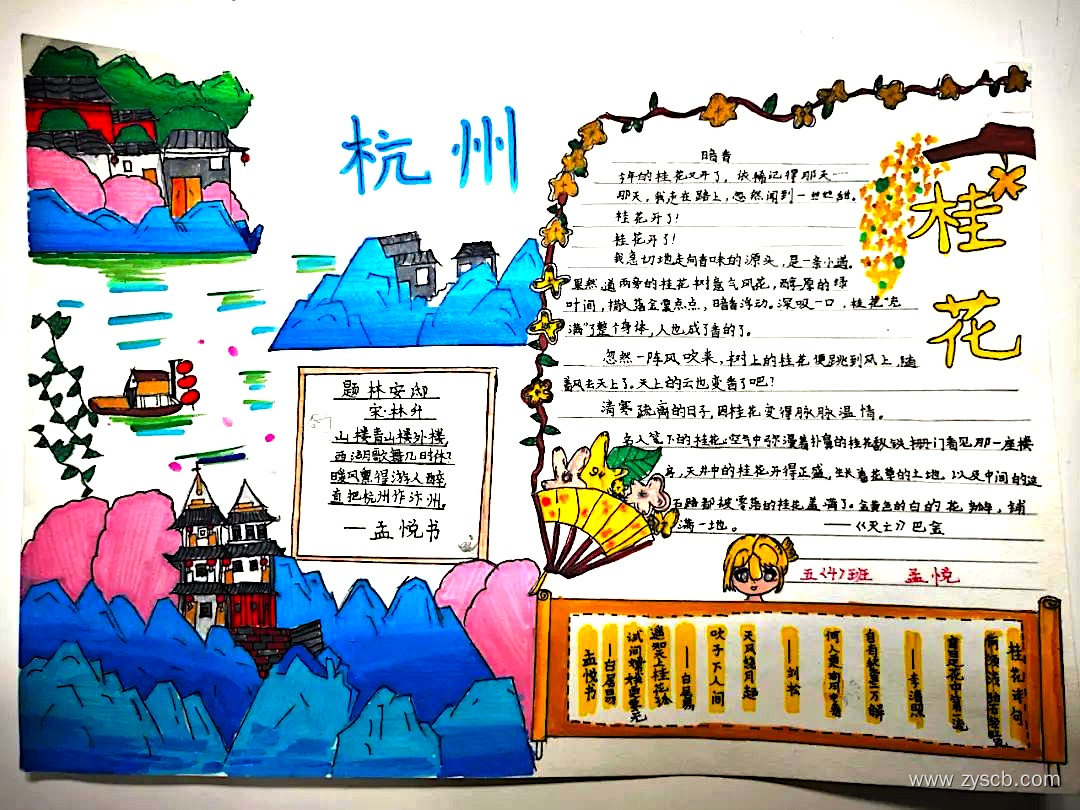 杭州
题林安邸
宋·林升
山楼青山楼外楼,
西湖歌舞几时休?
暖风熏得游人醉
直把杭州作汴州。
—孟悦书
桂花
暗香
今年的桂花又开了，依稀记得那天……
那天，我走在路上，忽然闻到一丝丝甜。
桂花开了!
桂花开了!
我急切地走向香味的源头，是一条小道。
果然道两旁的桂花树
叶间，撒落金粟点点，暗香浮动。深吸一口，桂花"充
满"了整个身体，人也成了香的了。
忽然一阵风吹来，树上的桂花便跳到风上，随
着风去天上了。天上的云也变香了吧?
清寒疏离的日子，因桂花变得脉脉温情。
名人笔下的桂花:空气中弥漫着
天井中的桂花开得正盛，
石路都被零落的桂花盖满了。金黄色的白的花
满一地。 ——《天土》巴金
五(4)班 孟悦
桂花诗句
——李清照
自有秋香三万斛
何人更向月中看
——刘松
天风绕月起
吹子下人间
——白居易
遥知天上桂花孤
试问嫦娥更要无
——白居易
孟悦书
www.zyscb.com